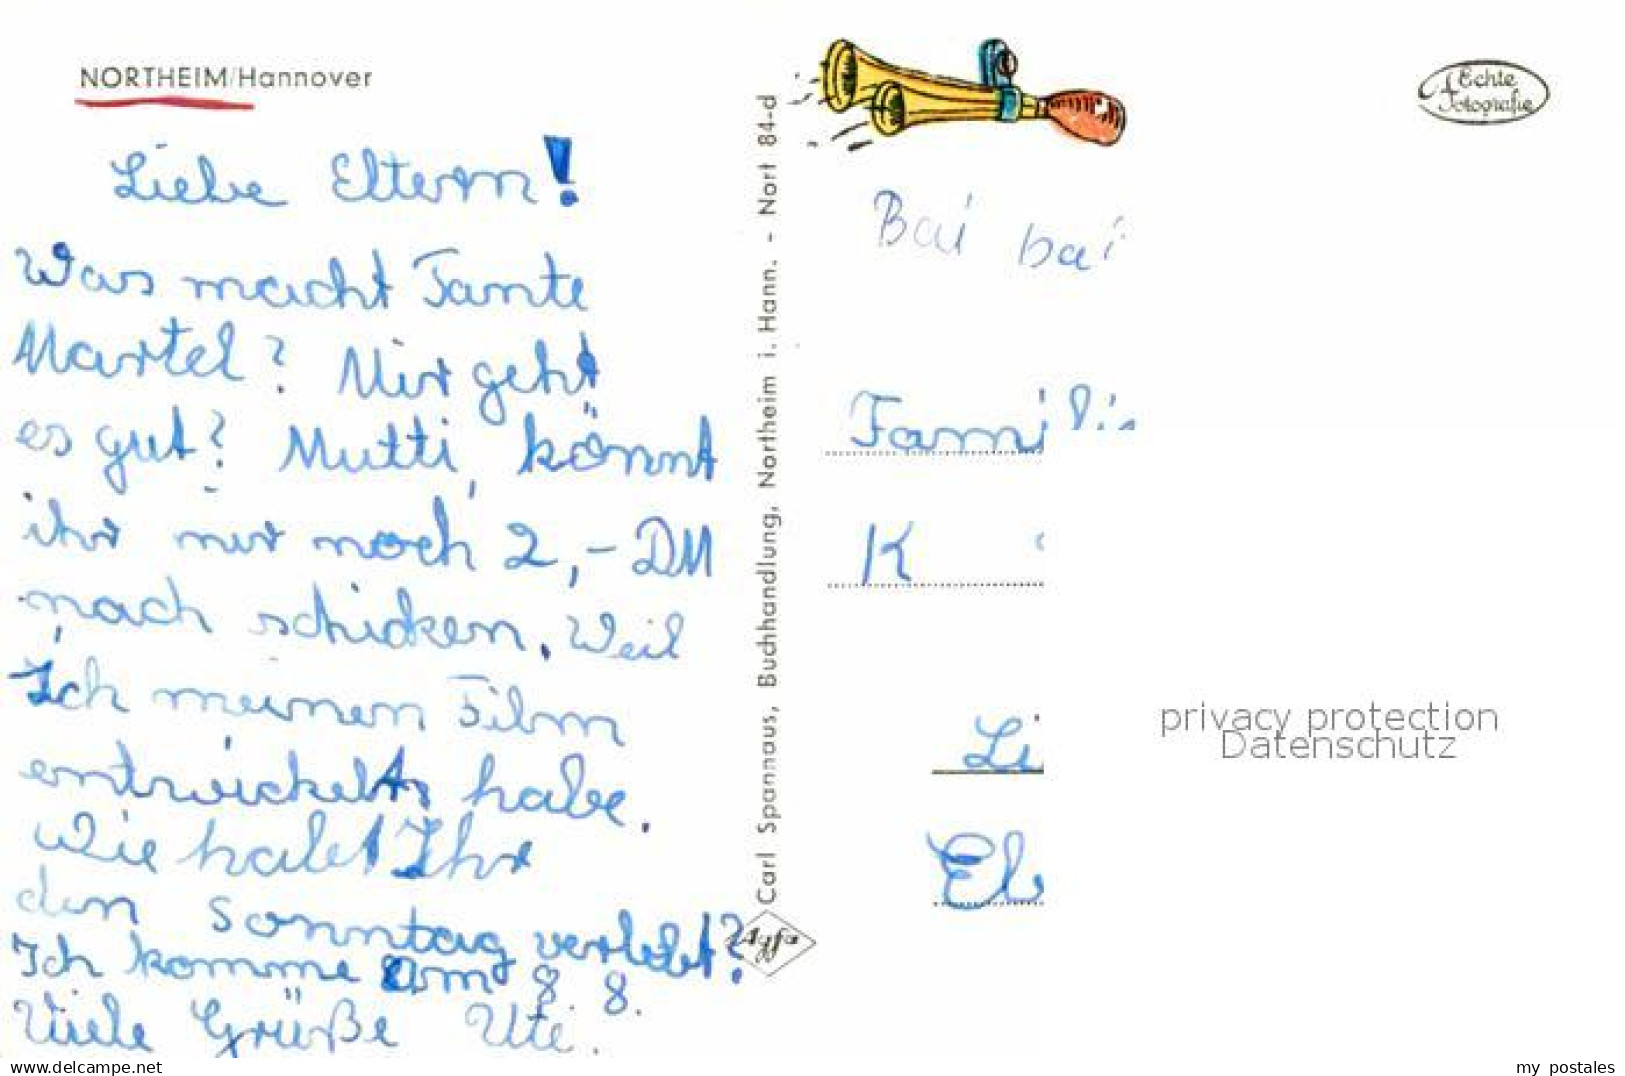 NORTHEIM/Hannover
Liebe Eltern!
Was macht Tante
Martel? Mir geht
es gut? Mutti, könnt
ihr mir noch 2,- DM
nach schicken. Weil
Ich meinen Film
entwickelts habe.
Wie habet Ihr
den Sonntag verlebt?
Ich komme am 8 8.
Viele Grüße Uti.
Carl Spannaus, Buchhandlung, Northeim i. Hann. - Nort 84-d
Agfa
Echte
Fotografie
Bai bai
Famili
K
Li
El
privacy protection
Datenschutz
www.delcampe.net
my_postales